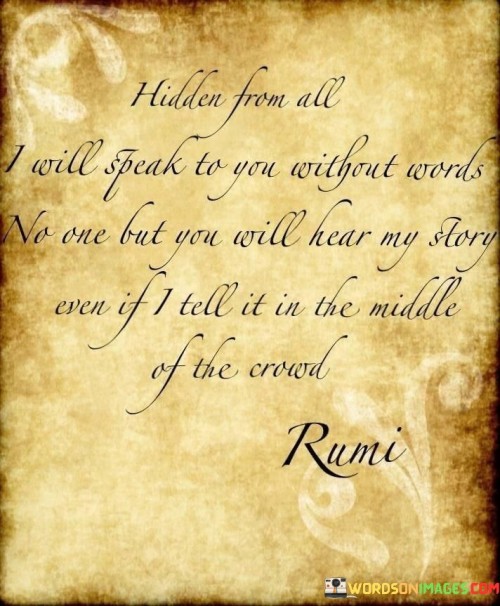 Hidden from all
I will speak to you without words
No one but you will hear my story
even if I tell it in the middle
of the crowd
Rumi
WORDSONIMAGES.COM